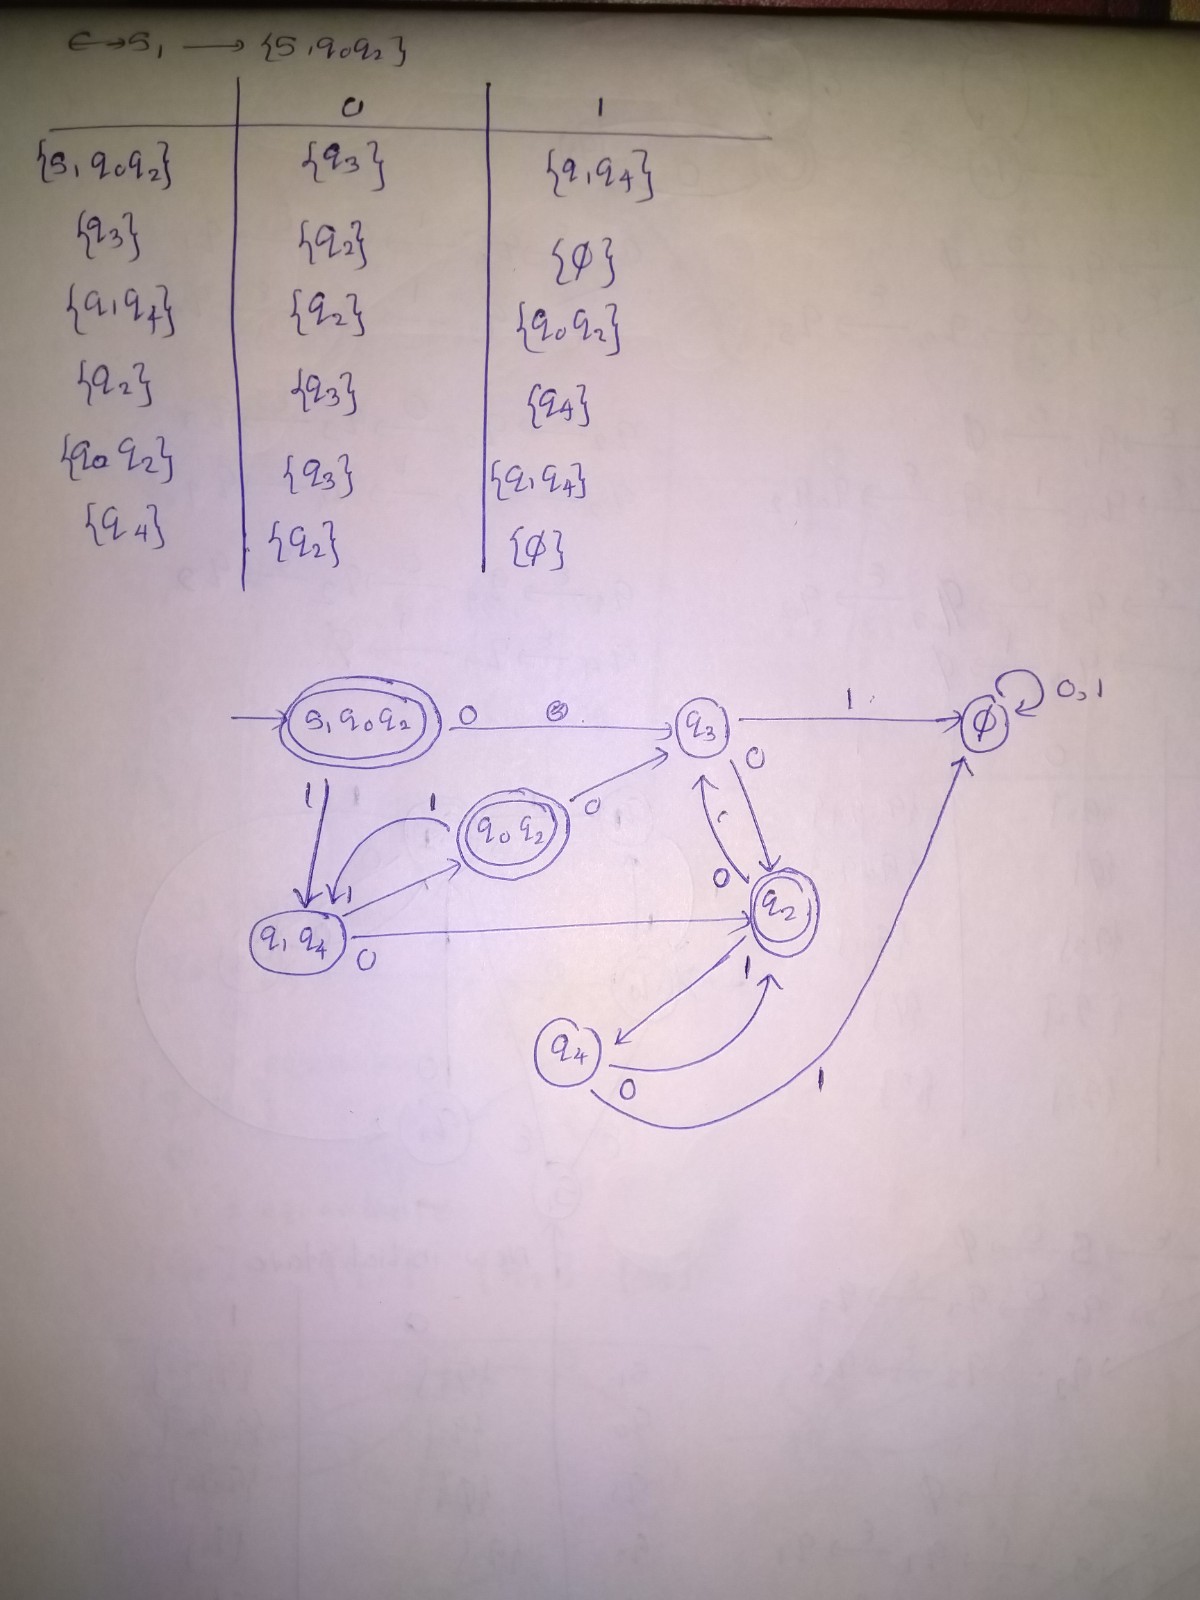 ϵ→S, → {S,q₀q₂}
0 1
{S,q₀q₂} {q₃} {q₁q₄}
{q₃} {q₂} {ϕ}
{q₁q₄} {q₂} {q₀q₂}
{q₂} {q₃} {q₄}
{q₀q₂} {q₃} {q₁q₄}
{q₄} {q₂} {ϕ}
S,q₀q₂ 0 q₃ 1 ϕ 0,1
1 1 q₀q₂ 0 0
q₁q₄ 1 0 0 q₂
1
q₄ 0 1